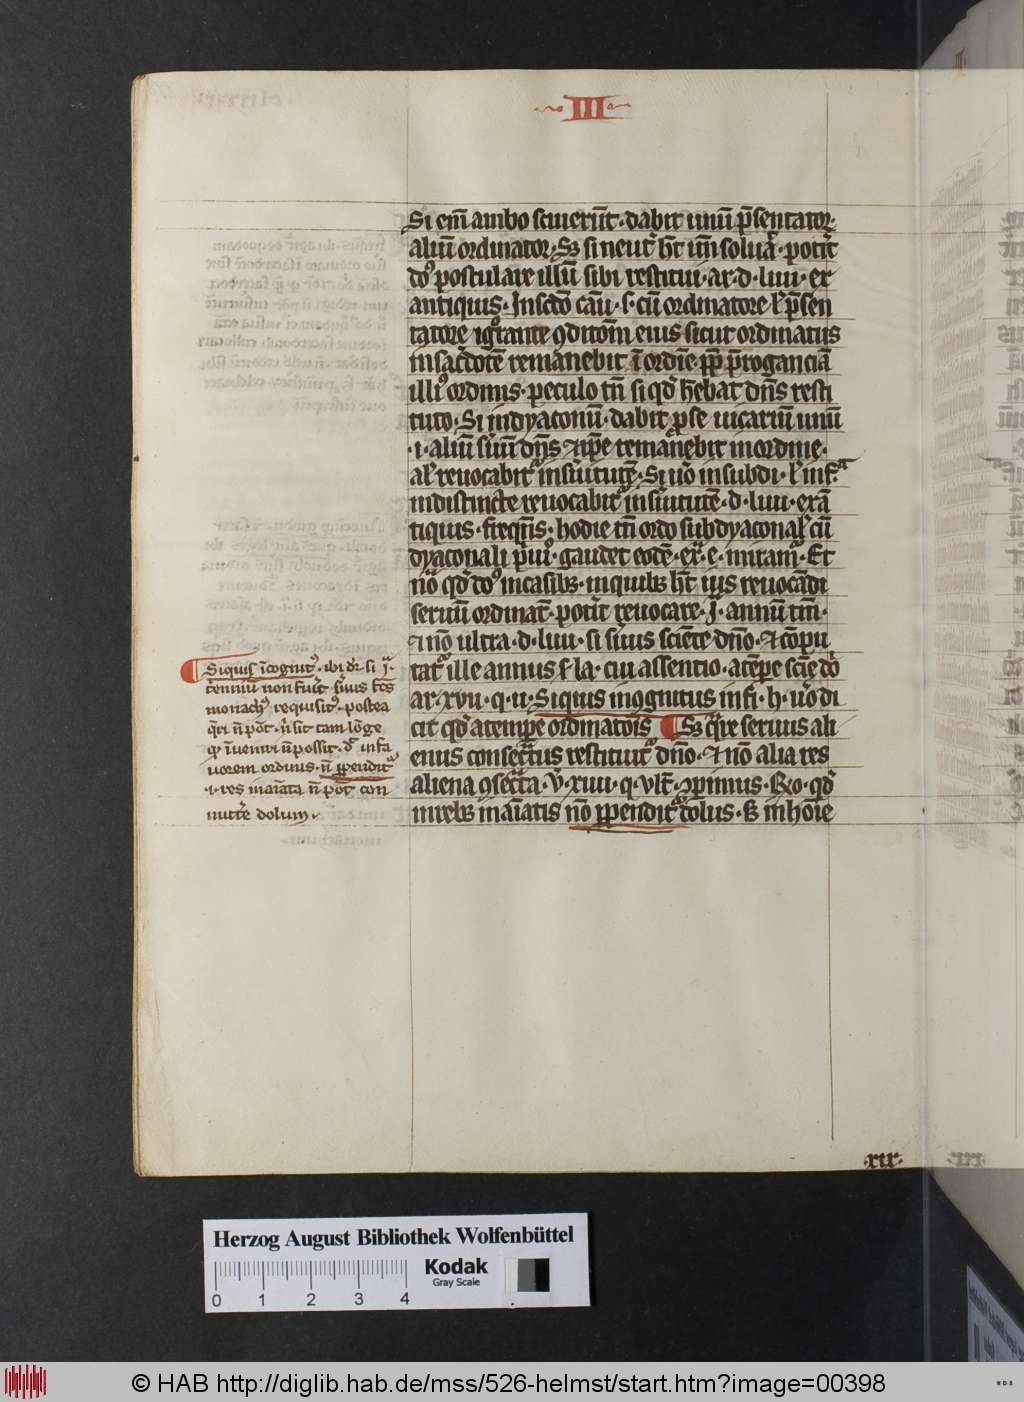 III
Si em̄ ambo sciuerūt · dabit unū p̄sentator ·
aliū ordinator · Sꝫ si neut̄ hꝫt un̄ soluat · potit̄
dn̄s postulare illū sibi restitui · ar · d · liiii · ex
antiquis · In scd̄o cāu · s · cū ordinatore ł p̄sen
tatore ignorante ꝯditōm eius sicut ordinatus
in sac̄dotē remanebit ī ordīe ꝓp̄ p̄rogatiuā
illiꝰ ordinis · peculo tn̄ si qd̄ hēbat dn̄s resti
tuto · Si in dyaconū · dabit pro se uicariū unū
· i · aliū s̄uū dn̄s ⁊ ip̄e remanebit in ordine ·
al̄ reuocabit̄ in s̄uitutē · Si uo in subdi · ł inf̄a
indistincte reuocabit̄ in s̄uitutē · d · liiii · ex ā
tiquis · freqn̄s · hodie tn̄ ordo subdyaconal̄ cū
dyaconali p̄uiꝰ gaudet eodē · ex̄ · e · mirant̄ · Et
nō qd̄ dn̄s in casibꝫ · in quibꝫ hꝫt ius reuocādi
seruū ordinat̄ · potit̄ reuocare · ī annū tm̄ ·
⁊ nō ultra · d · liiii · si s̄uus sciēte dn̄o · ⁊ cōpu
tat̄ ille annus s̄ la · cui assentio · a tēpe scīe dn̄i
ar · xvii · q · ii · Si quis incognitus infi · h · uō di
cit qd̄ a tempe ordinatōis ¶ Sꝫ q̄re seruus ali
enus consec̄tus restituit̄ dn̄o · ⁊ nō alia res
aliena ꝯsec̄ta · v̄ · xiiii · q · vi · ꝯpimus · Rō · qd̄
in rebꝫ maīatis nō ꝓpendit̄ dolus · sꝫ in hoīe
Si quis īcognitꝰ · ibi dr̄ · si ī ·
tennium non fuit̄ s̄uus fc̄s
monachꝰ requisitꝰ · postea
q̄ri n̄ pōt · n̄ sit tam lōge
qꝫ īueniri n̄ possit · d̄ in fa
uorem ordinis · n̄ ꝓpendit̄
· i · res maīata n̄ pōt con
mittē dolum ·
· xix ·
Herzog August Bibliothek Wolfenbüttel
Kodak
Gray Scale
0 1 2 3 4
© HAB http://diglib.hab.de/mss/526-helmst/start.htm?image=00398